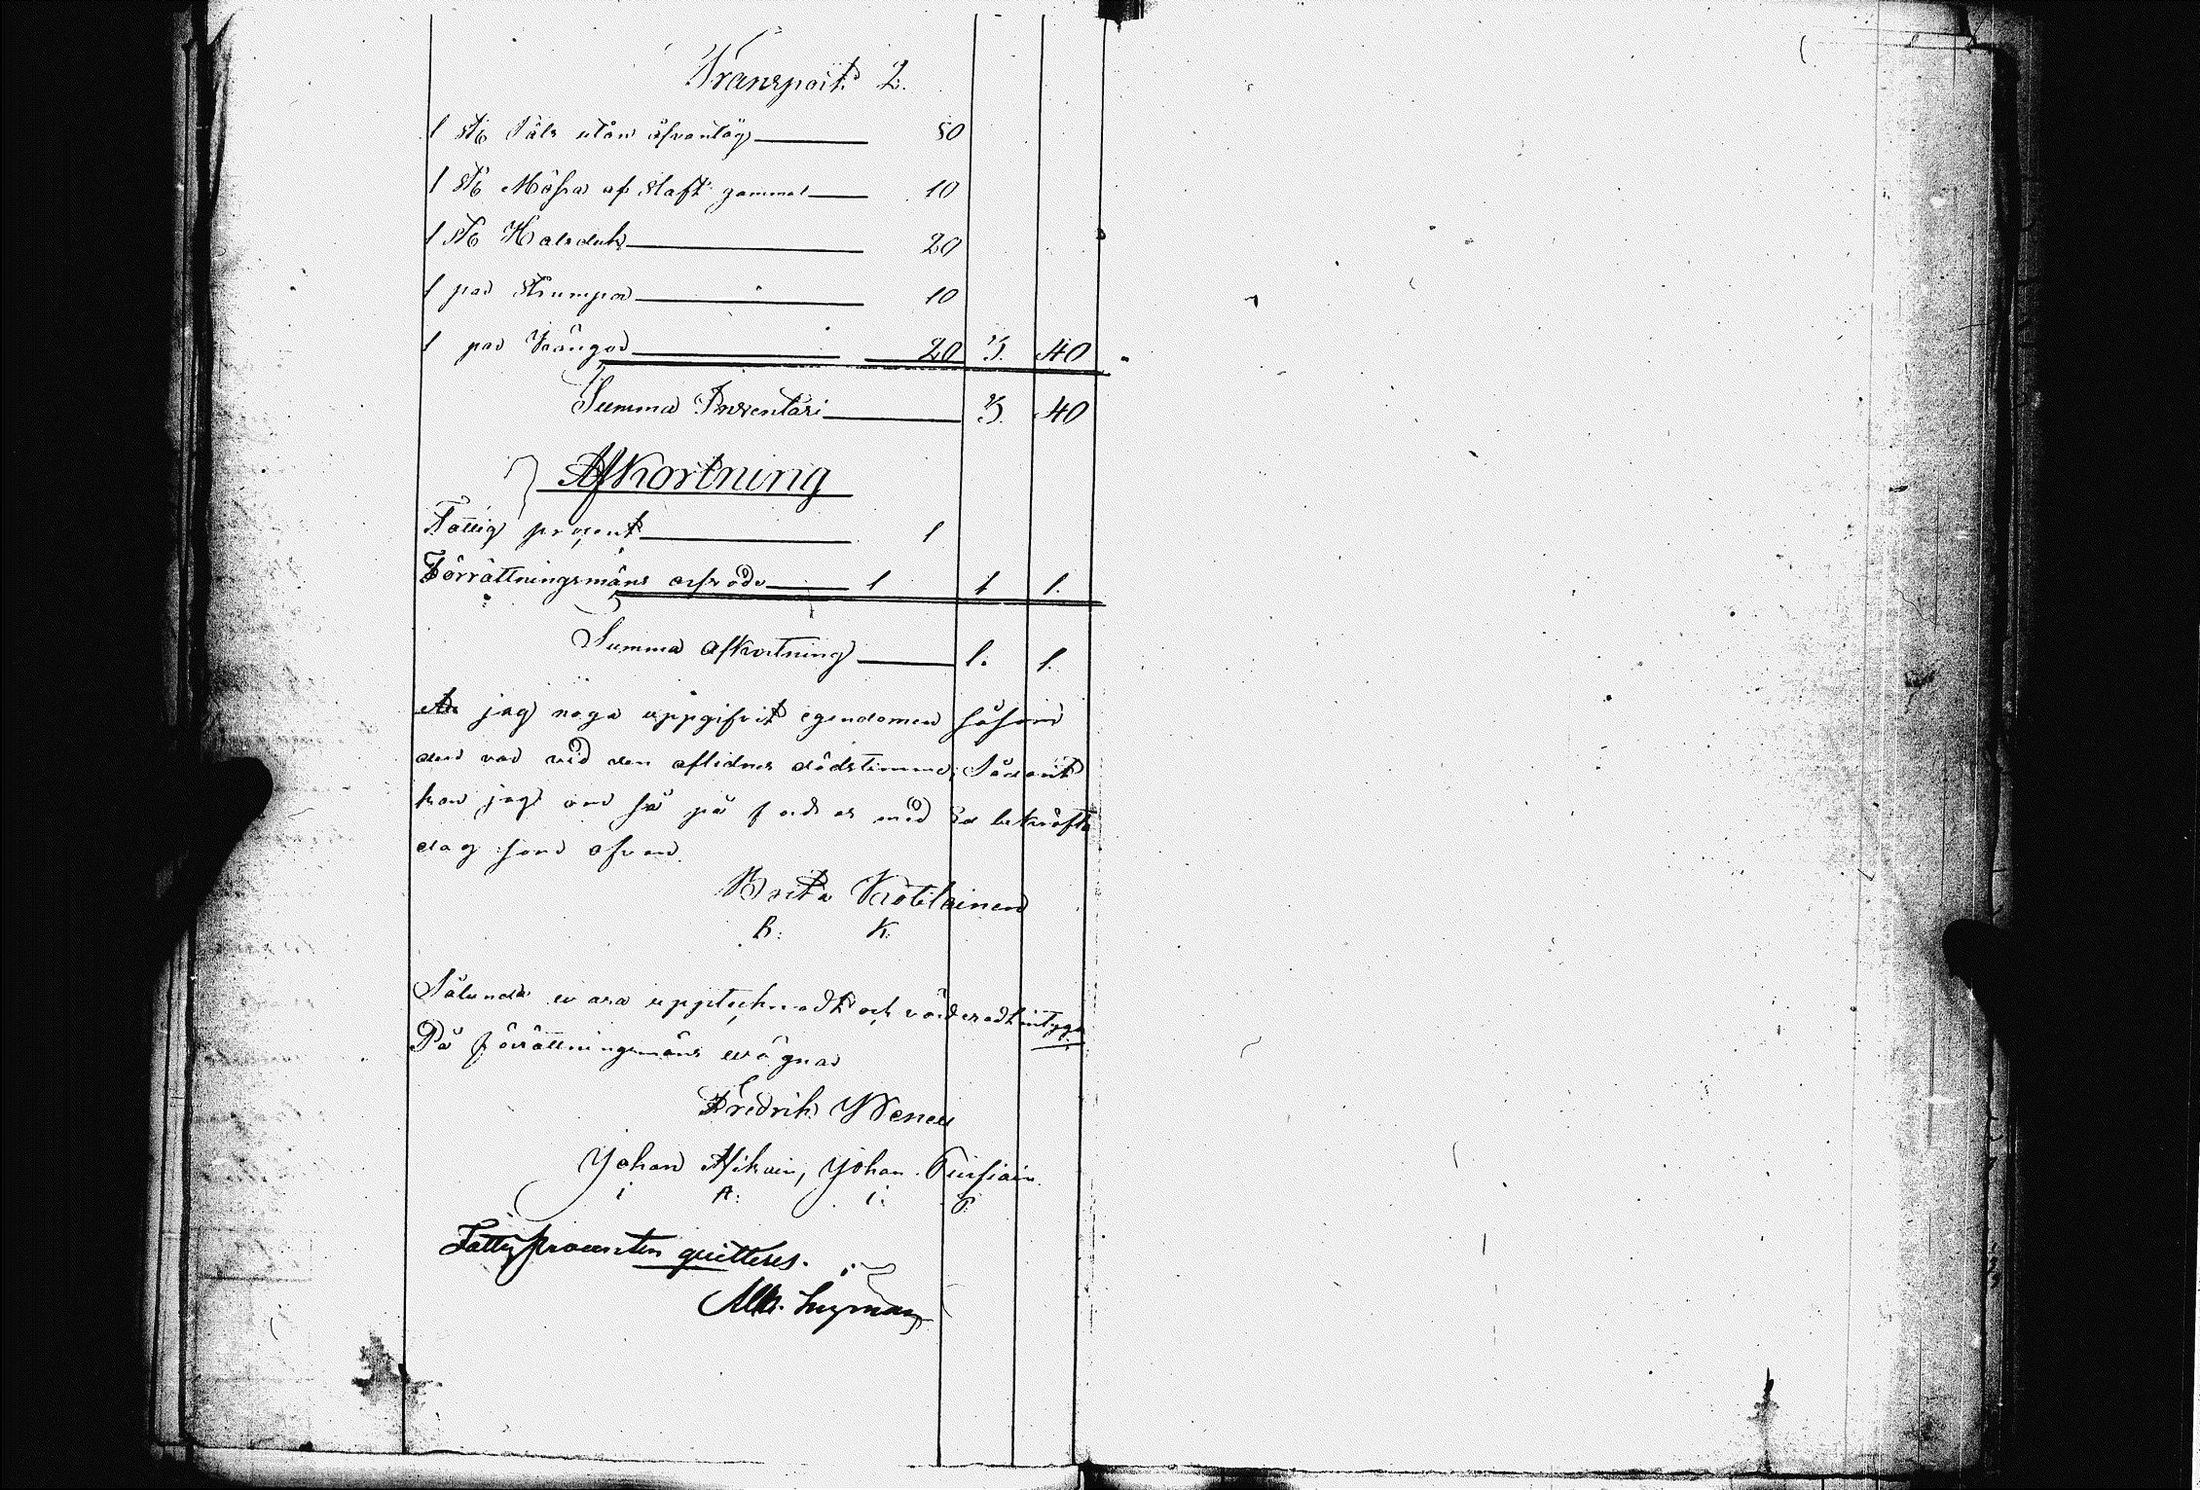 Transport 2.
1 st. Päls utan öfvantög 50
1 st. Mössa af Taft gammal 10
1 st. Halsduk 20
1 par Strumpor 10
1 par Kängor 20 3. 40
Summa Inventari 3. 40
Afkortning
Fattig procent 1
Förrättningsmäns arfvode 1 1 1.
Summa afkortning 1. 1.
At jag noga uppgifvit egendomen såsom
den var vid den aflidnes dödstimme, Sådant
kan jag om så på fordras med Ed bekräfta
dag som ofvan.
Brita Kötilainen
B. K.
Sålunda wara upptecknadt och värderadt intyga
På förrättningsmäns wägnar
Fredrik Wenell
Johan Asikain, Johan
i A. i. P.
Fattigprocenten quitteres.